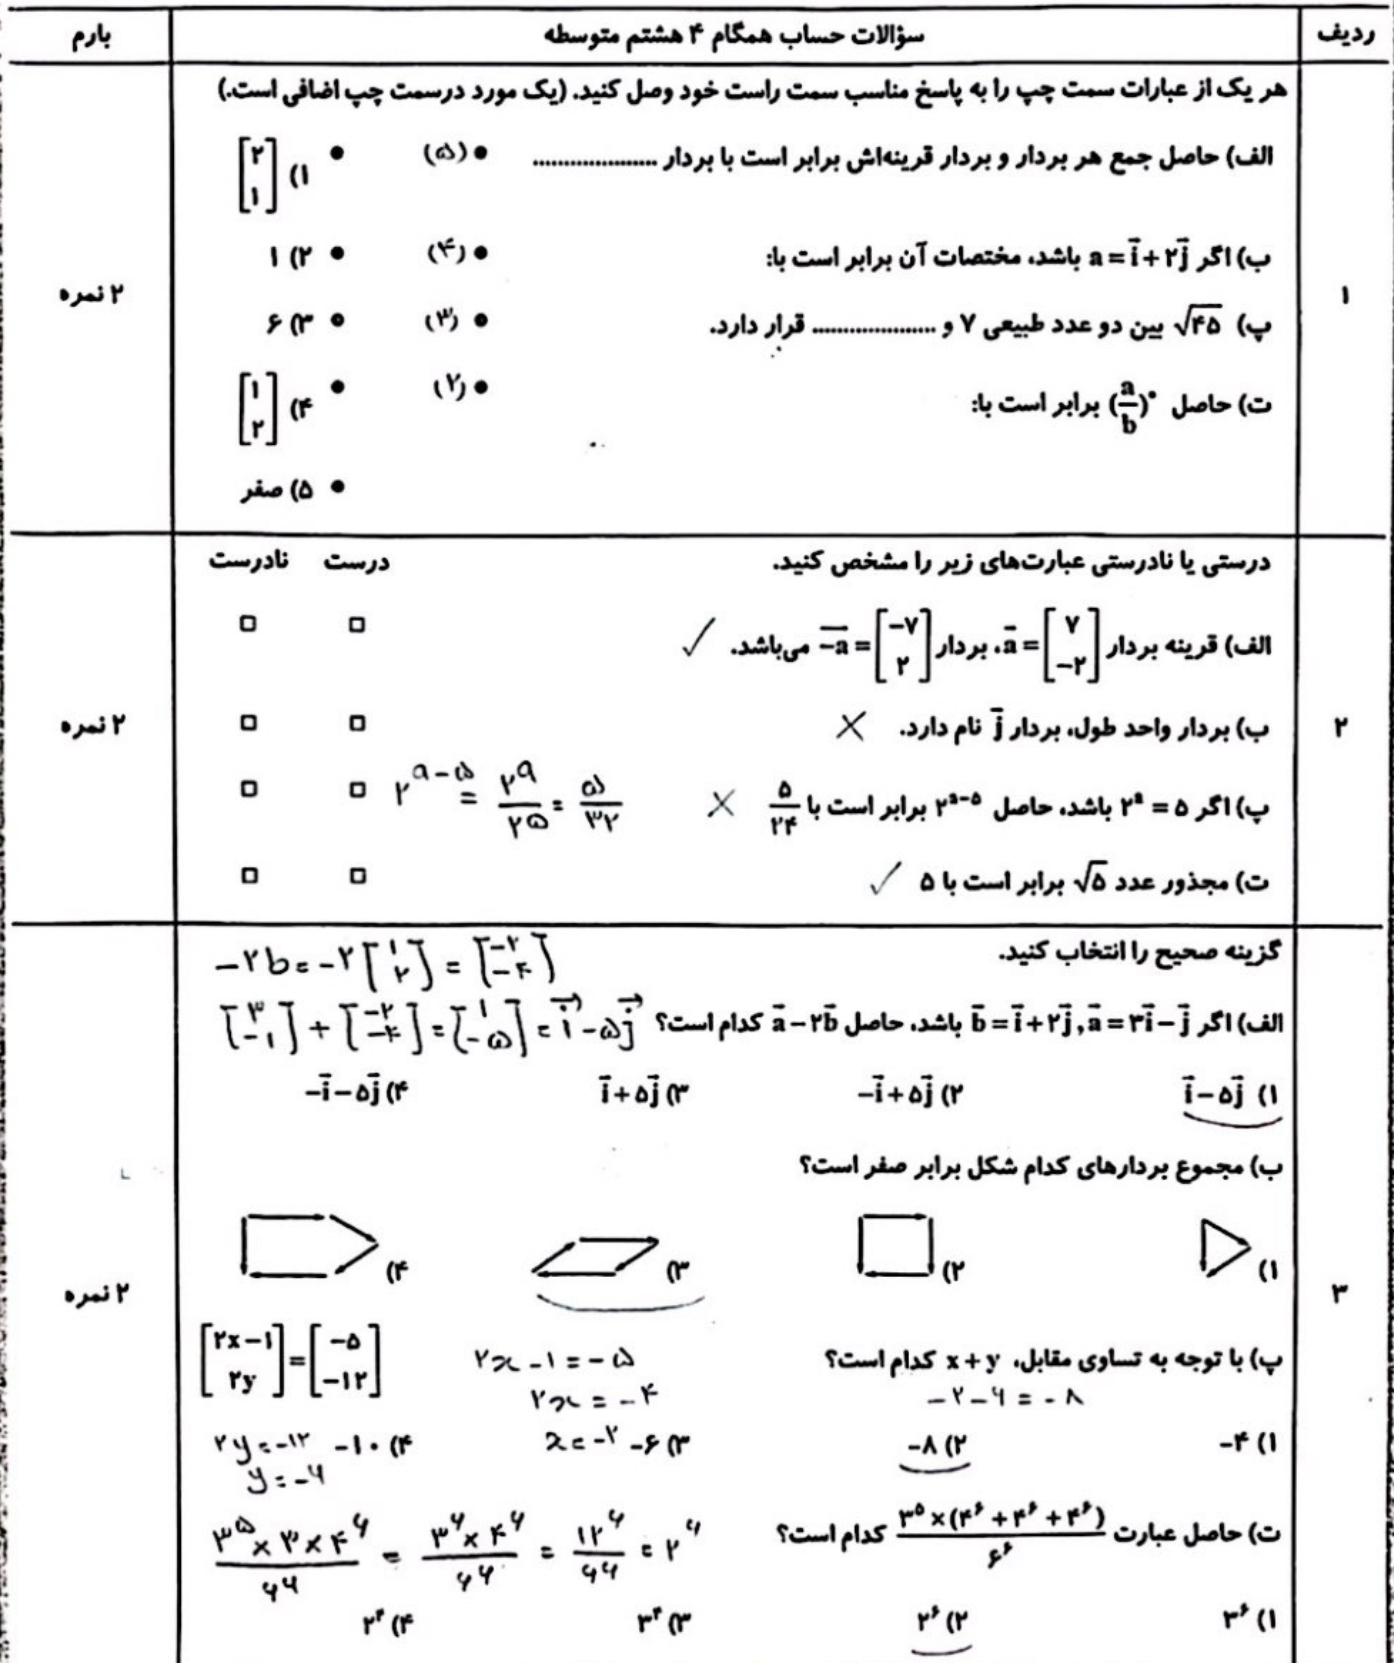 ردیف سؤالات حساب همگام ۴ هشتم متوسطه بارم
هر یک از عبارات سمت چپ را به پاسخ مناسب سمت راست خود وصل کنید. (یک مورد درسمت چپ اضافی است.)
۱
۲ نمره
الف) حاصل جمع هر بردار و بردار قرینه‌اش برابر است با بردار .................... ● (۵) ● ۱) [۲ ۱]
ب) اگر a = i + ۲j باشد، مختصات آن برابر است با: ● (۴) ● ۲) ۱
پ) √۴۵ بین دو عدد طبیعی ۷ و .................... قرار دارد. ● (۳) ● ۳) ۶
ت) حاصل (a/b)^۰ برابر است با: ● (۲) ● ۴) [۱ ۲]
● ۵) صفر
درستی یا نادرستی عبارت‌های زیر را مشخص کنید. درست نادرست
۲
۲ نمره
الف) قرینه بردار a = [۷ -۲]، بردار -a = [-۷ ۲] می‌باشد. ✓ □ □
ب) بردار واحد طول، بردار j نام دارد. × □ □
پ) اگر ۲^a = ۵ باشد، حاصل ۲^(a-۵) برابر است با ۵/۲۴ × ۲^(a-۵) = ۲^a/۲^۵ = ۵/۳۲ □ □
ت) مجذور عدد √۵ برابر است با ۵ ✓ □ □
گزینه صحیح را انتخاب کنید. -۲b = -۲[۱ ۲] = [-۲ -۴]
۳
۲ نمره
الف) اگر a = ۳i - j , b = i + ۲j باشد، حاصل a - ۲b کدام است؟ [۳ -۱] + [-۲ -۴] = [۱ -۵] = i - ۵j
۱) i - ۵j ۲) -i + ۵j ۳) i + ۵j ۴) -i - ۵j
ب) مجموع بردارهای کدام شکل برابر صفر است؟
۱) ۲) ۳) ۴)
پ) با توجه به تساوی مقابل، x + y کدام است؟ [۲x - ۱ ۲y] = [-۵ -۱۲]
۲x - ۱ = -۵
-۲ - ۶ = -۸ ۲x = -۴
۱) -۴ ۲) -۸ ۳) -۶ x = -۲ ۴) -۱۰ ۲y = -۱۲
y = -۶
ت) حاصل عبارت (۳^۵ × (۴^۶ + ۴^۶ + ۴^۶))/۶^۶ کدام است؟ (۳^۵ × ۳ × ۴^۶)/۶^۶ = (۳^۶ × ۴^۶)/۶^۶ = ۱۲^۶/۶^۶ = ۲^۶
۱) ۳^۶ ۲) ۲^۶ ۳) ۳^۴ ۴) ۲^۴